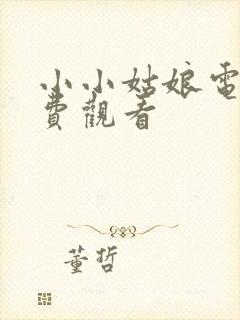 小小姑娘電
費觀看
董哲